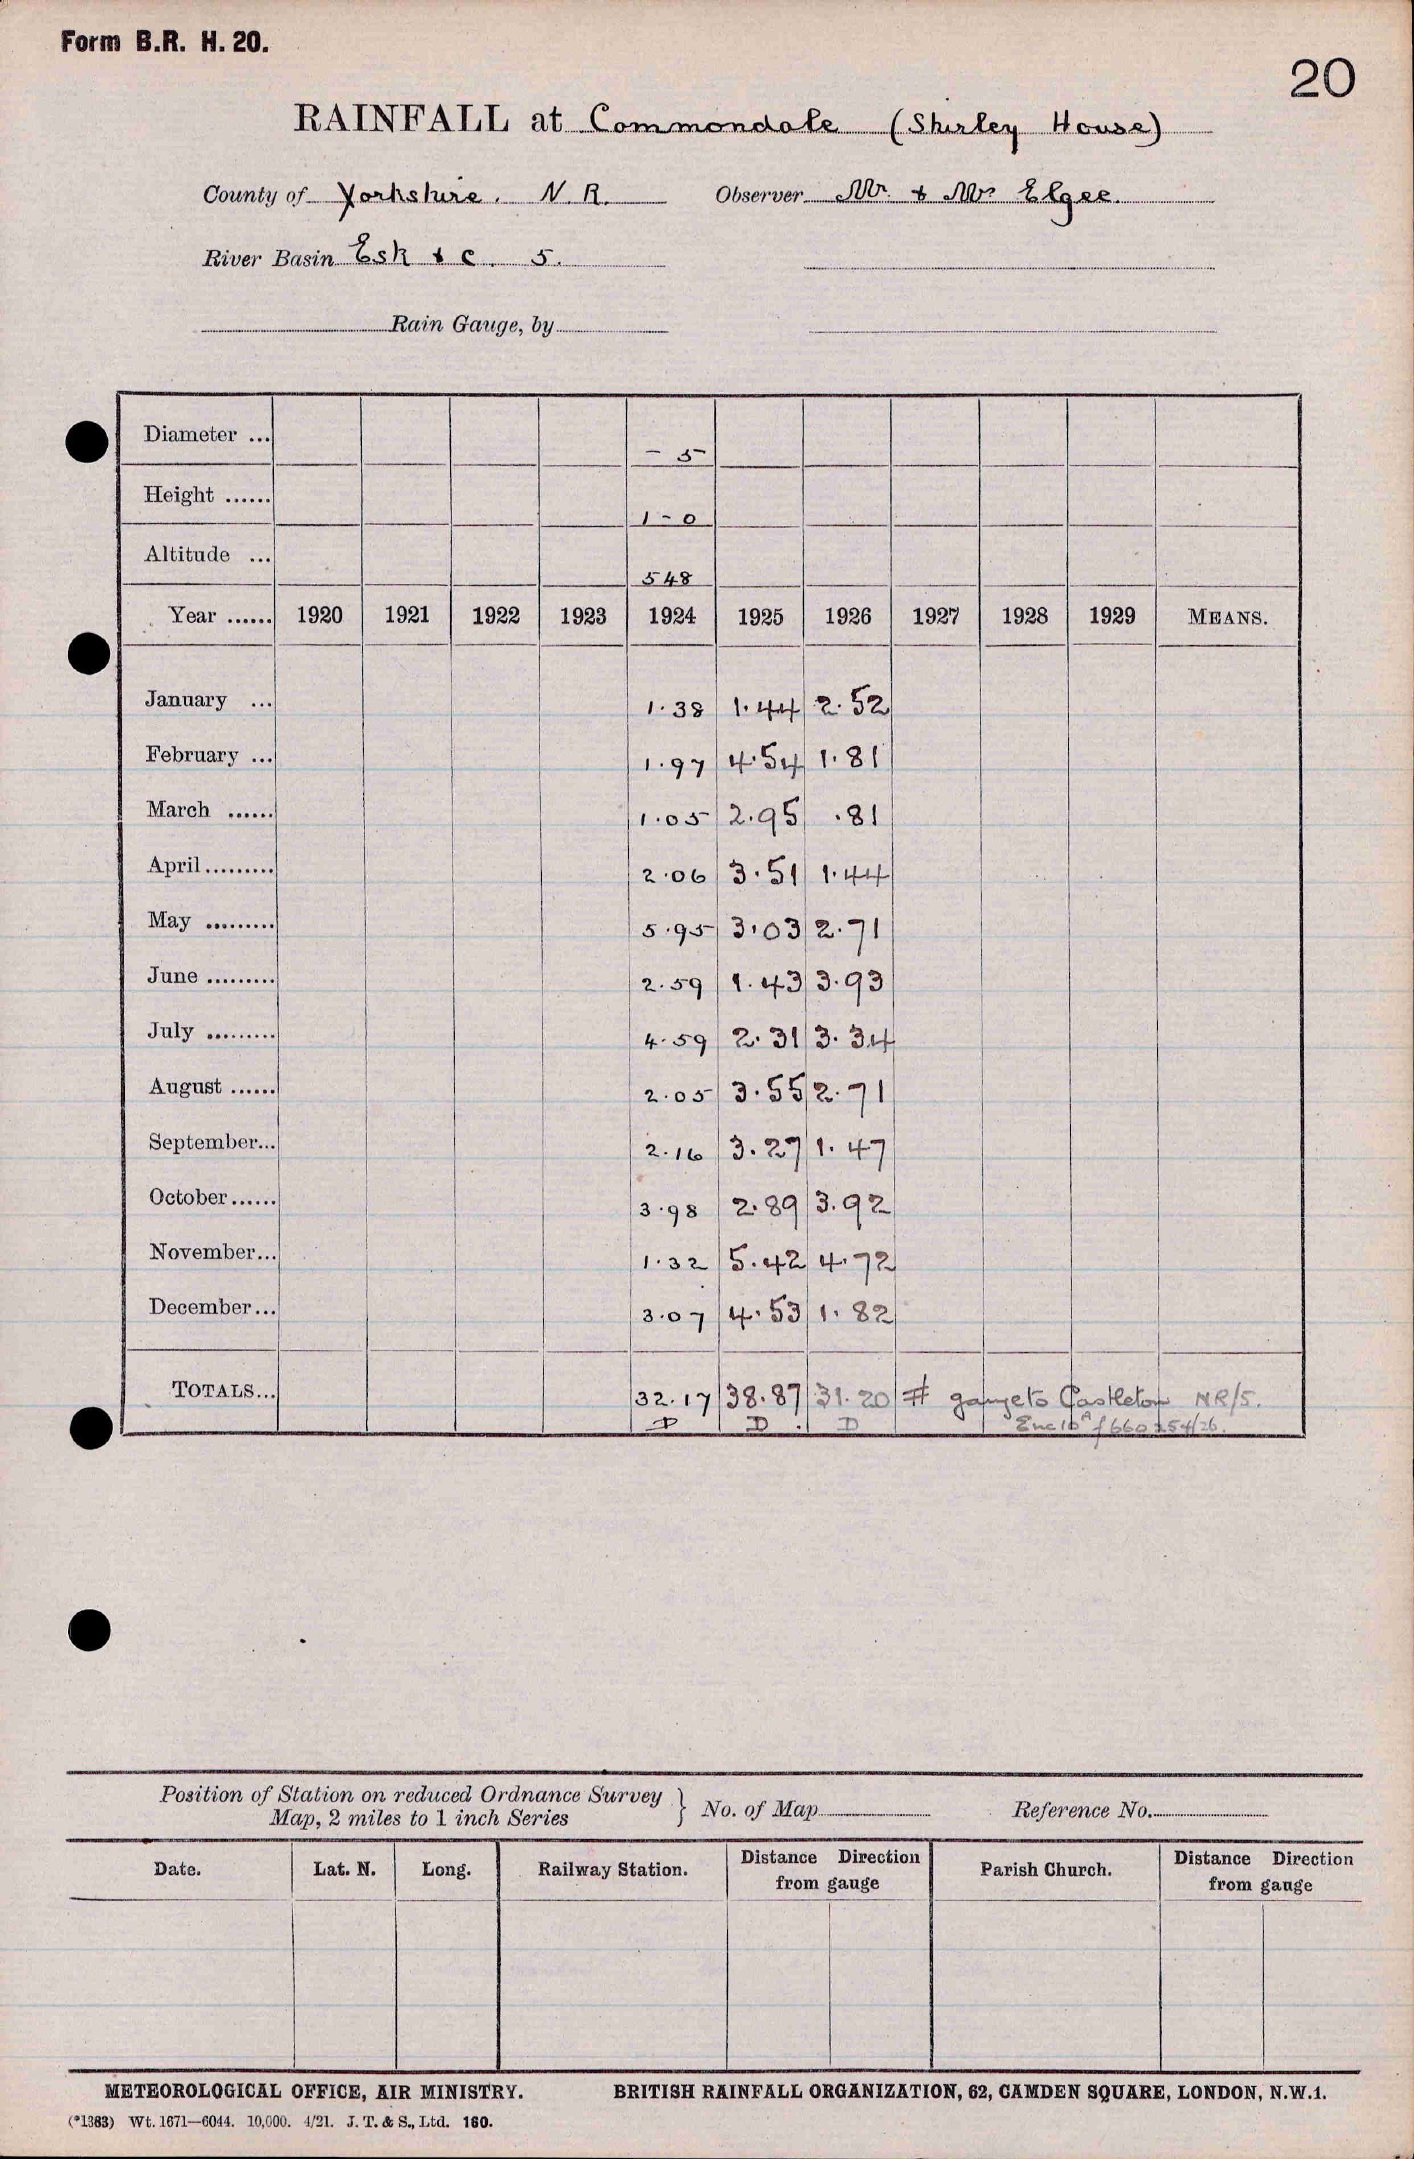 Form B.R. H. 20.
20
RAINFALL at Commondale (Shirley House)
County of Yorkshire. N. R. Observer Mr. & Mrs Elgee.
River Basin Esk & c. 5.
Rain Gauge, by
Diameter ... – 5
Height ...... 1 – 0
Altitude ... 548
Year ...... 1920 1921 1922 1923 1924 1925 1926 1927 1928 1929 MEANS.
January ... 1.38 1.44 2.52
February ... 1.97 4.54 1.81
March ...... 1.05 2.95 .81
April ......... 2.06 3.51 1.44
May ......... 5.95 3.03 2.71
June ......... 2.59 1.43 3.93
July ......... 4.59 2.31 3.34
August ...... 2.05 3.55 2.71
September... 2.16 3.27 1.47
October ...... 3.98 2.89 3.92
November... 1.32 5.42 4.72
December... 3.07 4.53 1.82
TOTALS... 32.17 38.87 31.20 # gauge to Castleton NR/5.
D D D Enc 10 A f 660 254/26.
Position of Station on reduced Ordnance Survey
Map, 2 miles to 1 inch Series } No. of Map Reference No.
Date. Lat. N. Long. Railway Station. Distance Direction from gauge Parish Church. Distance Direction from gauge
METEOROLOGICAL OFFICE, AIR MINISTRY. BRITISH RAINFALL ORGANIZATION, 62, CAMDEN SQUARE, LONDON, N.W.1.
(*1383) Wt. 1671—6044. 10,000. 4/21. J. T. & S., Ltd. 160.